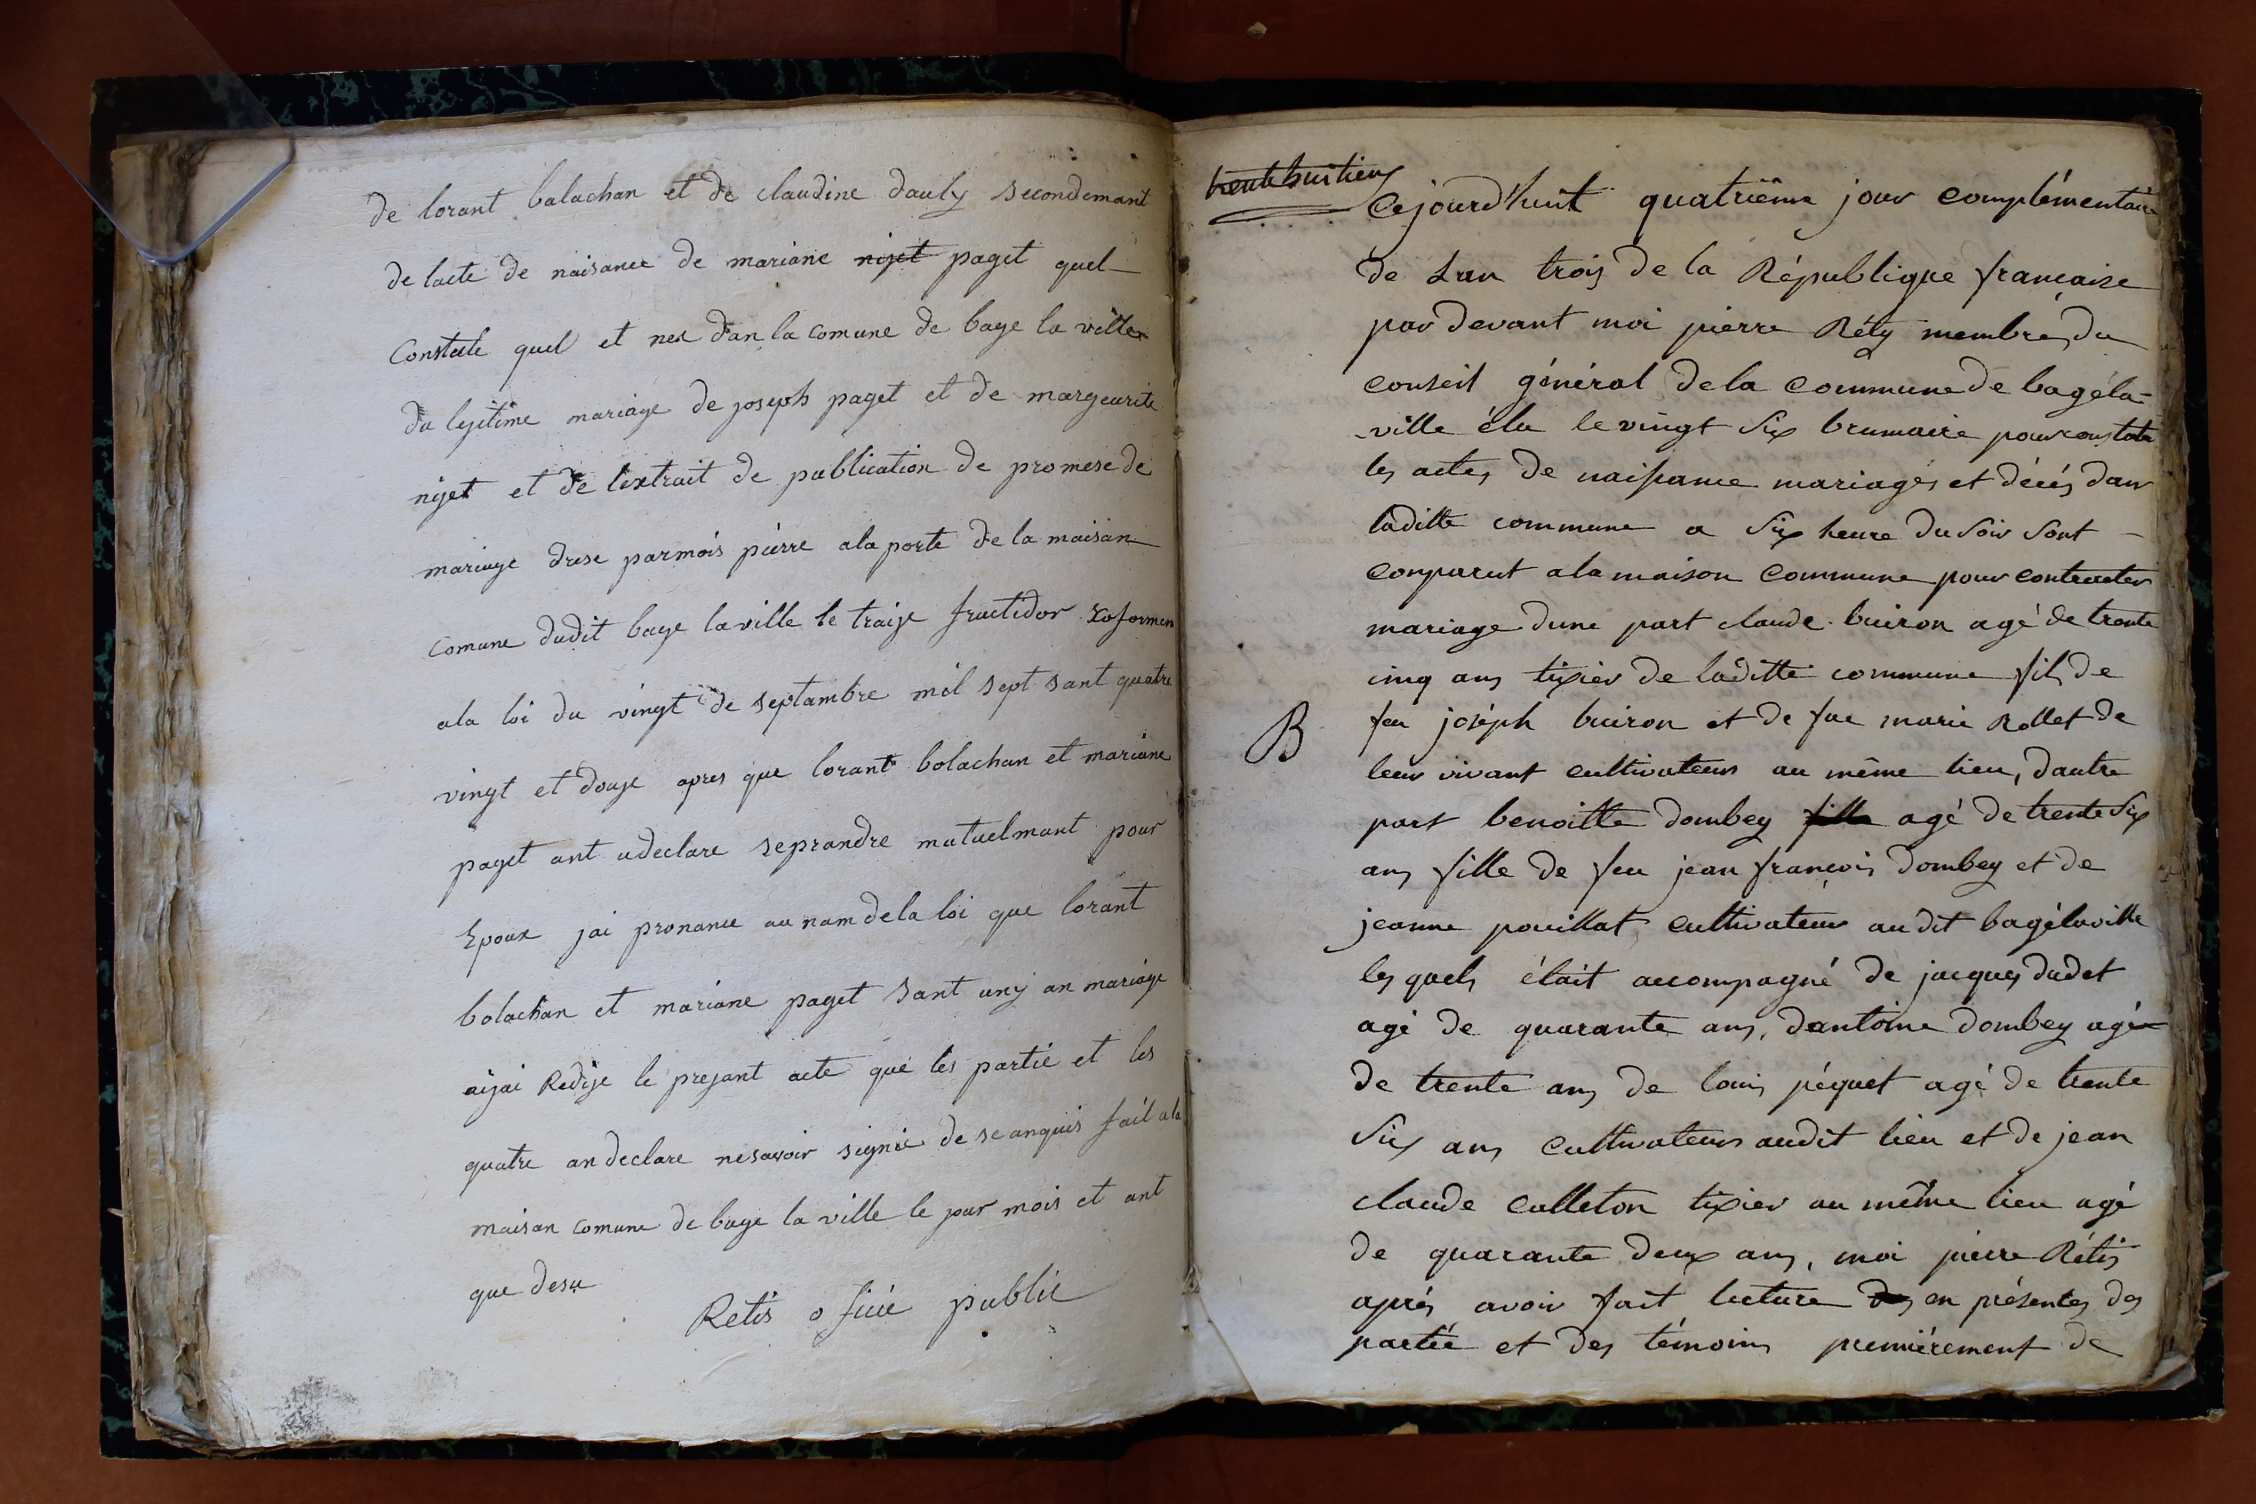 de lorant balachan et de claudine dauly secondemant
de lacte de naisance de mariane nijet paget quel
Constate quel et nee dan la comune de bage la ville
du lejitime mariage de joseph paget et de margeurite
nijet et de lextrait de publication de promese de
mariage drese parmois pierre ala porte de la maisan
comune dudit bage la ville le traize fructidor
ala loi du vingt de septambre mil sept sant quatre
vingt et douze apres que lorant bolachan et mariane
paget ant adeclare seprandre mutuelmant pour
Epoux jai pronance au nam dela loi que lorant
bolachan et mariane paget sant uny an mariage
aijai Redije le prejant acte que les partie et les
quatre an declare nesavoir signié de seanquis fait ala
maisan comune de bage la ville le jour mois et ant
que desu
Retis oficié public
trente huitiem
Cejourd'huit quatriême jour complémentaire
de Lan trois de la République française
par devant moi pierre Réty membre du
conseil général de la commune de bagéla-
ville élu le vingt six brumaire pour constater
les actes de naissance mariages et décés dans
laditte commune a six heure du soir sont
comparut a la maison commune pour contracter
mariage dune part claude buiron agé de trente
cinq ans tixier de laditte commune fils de
feu joséph buiron et de fue marie Rollet de
B
leur vivant cultivateurs au même lieu, dautre
part benoitte dombey fille agé de trente six
ans fille de feu jean françois dombey et de
jeanne pouillat cultivateurs au dit bagélaville
les quels était accompagné de jacques dudet
agé de quarante ans, dantoine dombey agé
de trente ans de louis péquet agé de trente
six ans cultivateurs audit lieu et de jean
claude culleton tixier au même lieu agé
de quarante deux ans, moi pierre Rétis
aprés avoir fait lecture des en présentes des
partie et des témoins premiérement de